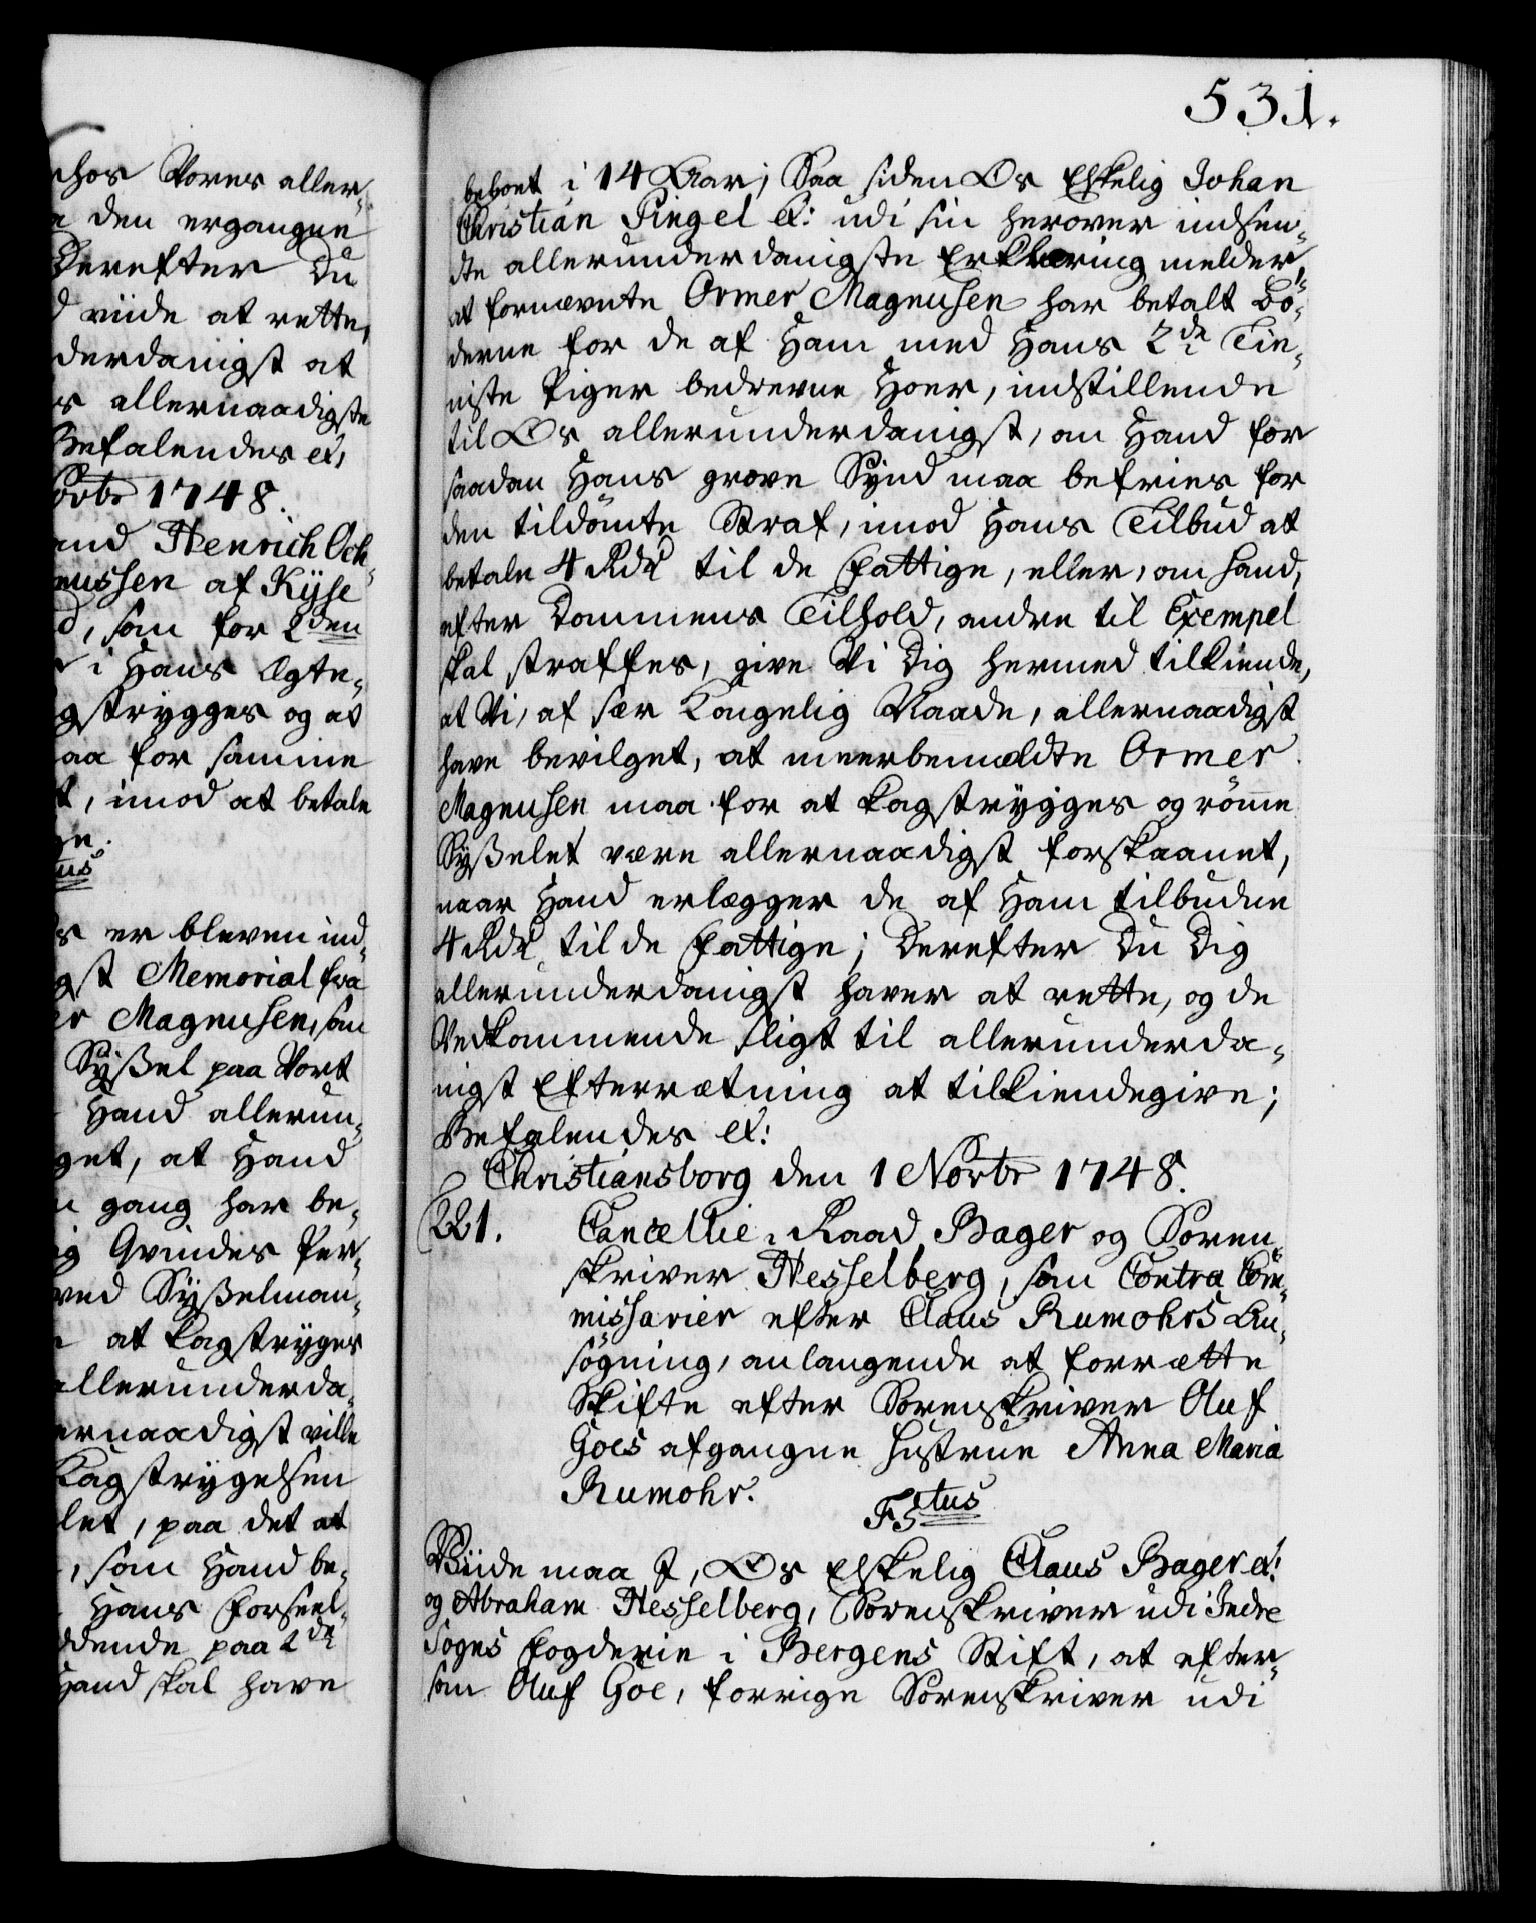 hos Vores aller-
den ergangne
Derefter Du
viide at rette,
derdanigst at
s allernaadigste
Befalendes etc
Novbr 1748.
and Henrich Och-
mussen af Kiyse
d, som for 2den
i Hans Ægte-
gstrygges og at
aa for samme
t, imod at betale
ge.
tus
s er bleven ind-
gst Memorial fra
er Magnusen, som
Sysßel paa Vort
Hand allerun-
get, at Hand
n gang har be-
ig Qvindes Per-
ved Sysßelman-
at kagstryges
allerunderda-
ernaadigst ville
Kagstrygelsen
let, paa det at
, som Hand be-
Hans Forseel-
dende paa 2de
Hand skal have
531.
beboet i 14 Aar; Saa siden Os Elskelig Johan
Christian Pingel etc: udi sin herover indsen-
dte allerunderdanigste Erklæring melder,
at fornævnte Ormer Magnusen har betalt Bö-
derne for de af Ham med Hans 2de Tie-
niste Piger bedrevne Hoer, indstillende
til Os allerunderdanigst, om Hand for
saadan Hans grove Synd maa befries for
den tildömte Straf, imod Hans Tilbud at
betale 4 Rdr til de Fattige, eller, om Hand,
efter Dommens Tilhold, andre til Exempel
skal straffes, give Vi Dig hermed tilkiende,
at Vi, af sær Kongelig Naade, allernaadigst
have bevilget, at meerbemældte Ormer
Magnusen maa for at kagstrygges og römme
Sysßelet være allernaadigst forskaanet,
naar Hand erlægger de af Ham tilbudne
4 Rdr til de Fattige; Derefter Du Dig
allerunderdanigst haver at rette, og de
Vedkommende sligt til allerunderda-
nigst Efterretning at tilkiendegive;
Befalendes etc:
Christiansborg den 1 Novbr 1748.
221. Cancellie-Raad Bager og Soren-
skriver Hesselberg, som Contra Com-
missarier efter Claus Rumohrs An-
sögning, anlangende at forrætte
Skifte efter Sorenskriver Oluf
Goes afgangne Hustrue Anna Maria
Rumohr.
F5tus
Viide maa I, Os Elskelig Claus Bager etc:
og Abraham Hesselberg, Sorenskriver udi Indre
Sogns Fogderie i Bergens Stift, at efter-
som Oluf Goe, forrige Sorenskriver udi